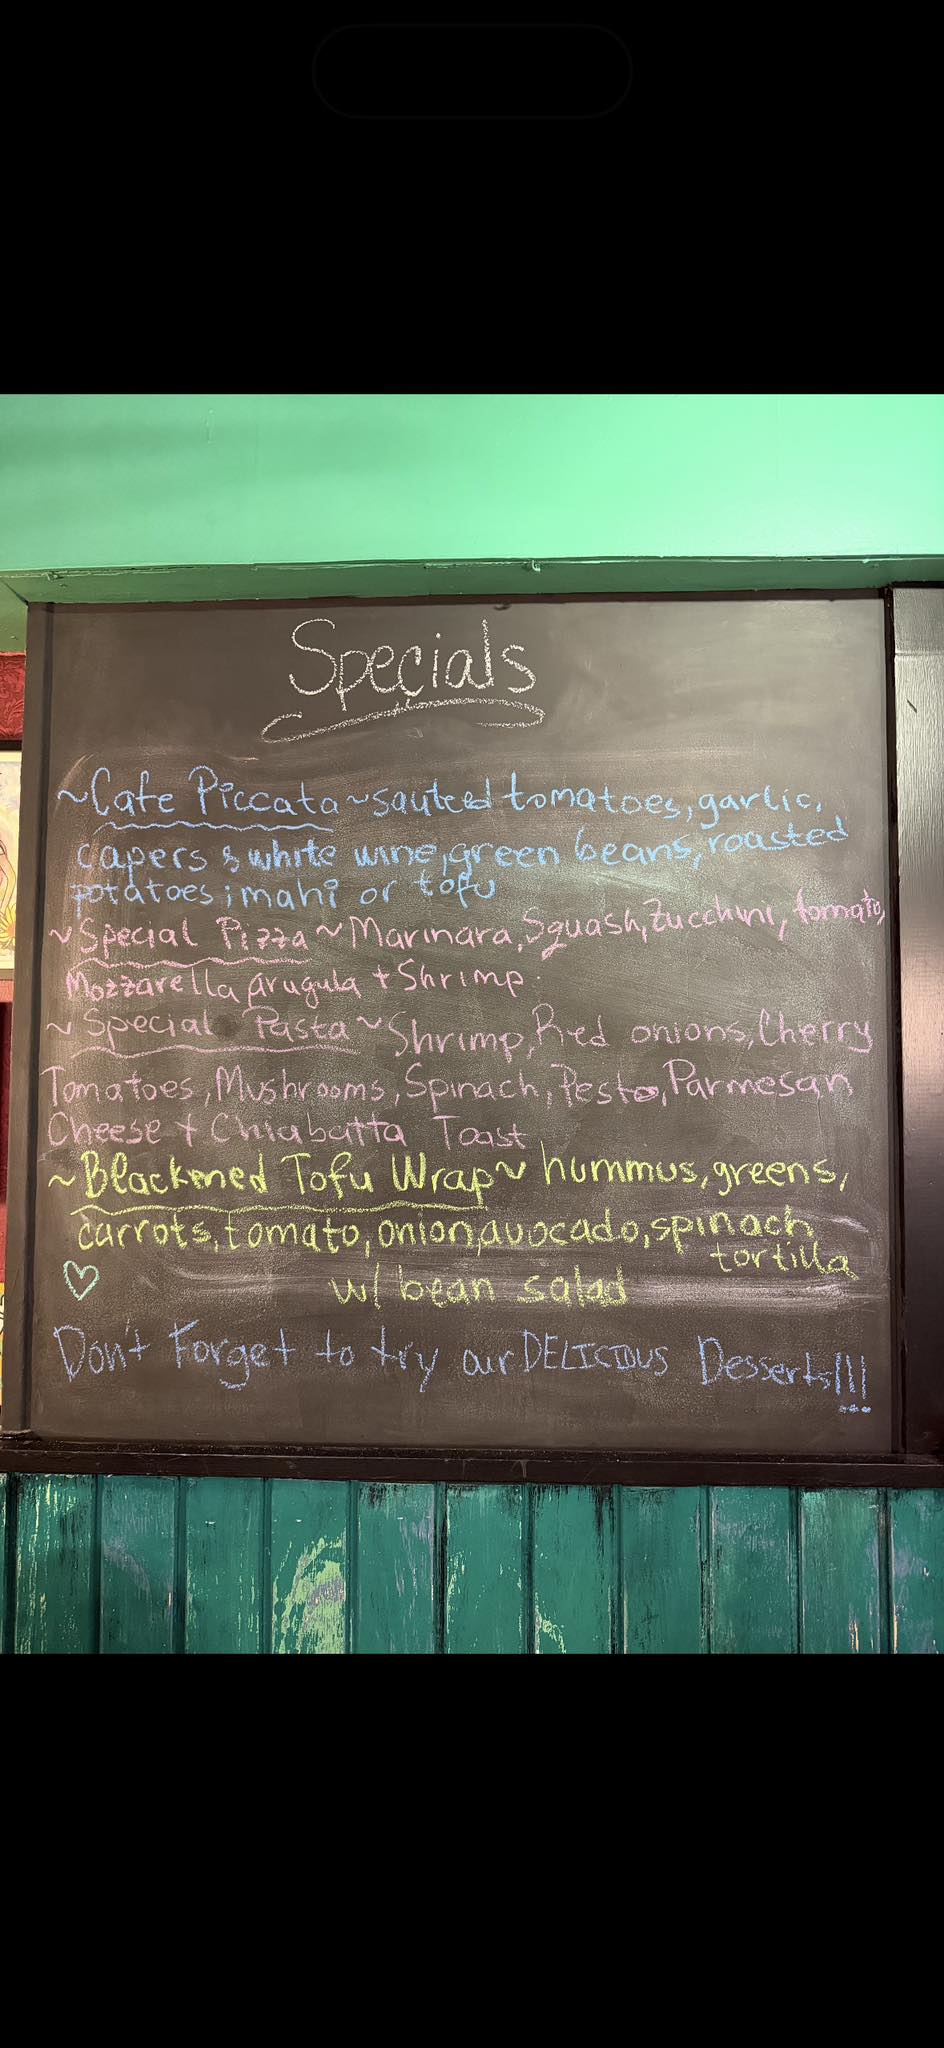 Specials
~Cafe Piccata~sauteed tomatoes, garlic,
capers & white wine, green beans, roasted
potatoes; mahi or tofu
~Special Pizza~Marinara, Squash, Zucchini, tomato,
Mozzarella, arugula + Shrimp.
~Special Pasta~Shrimp, Red onions, Cherry
Tomatoes, Mushrooms, Spinach, Pesto, Parmesan
Cheese + Chiabatta Toast
~Blackened Tofu Wrap~ hummus, greens,
carrots, tomato, onion, avocado, spinach
tortilla
♡ w/ bean salad
Don't Forget to try our DELICIOUS Desserts!!!